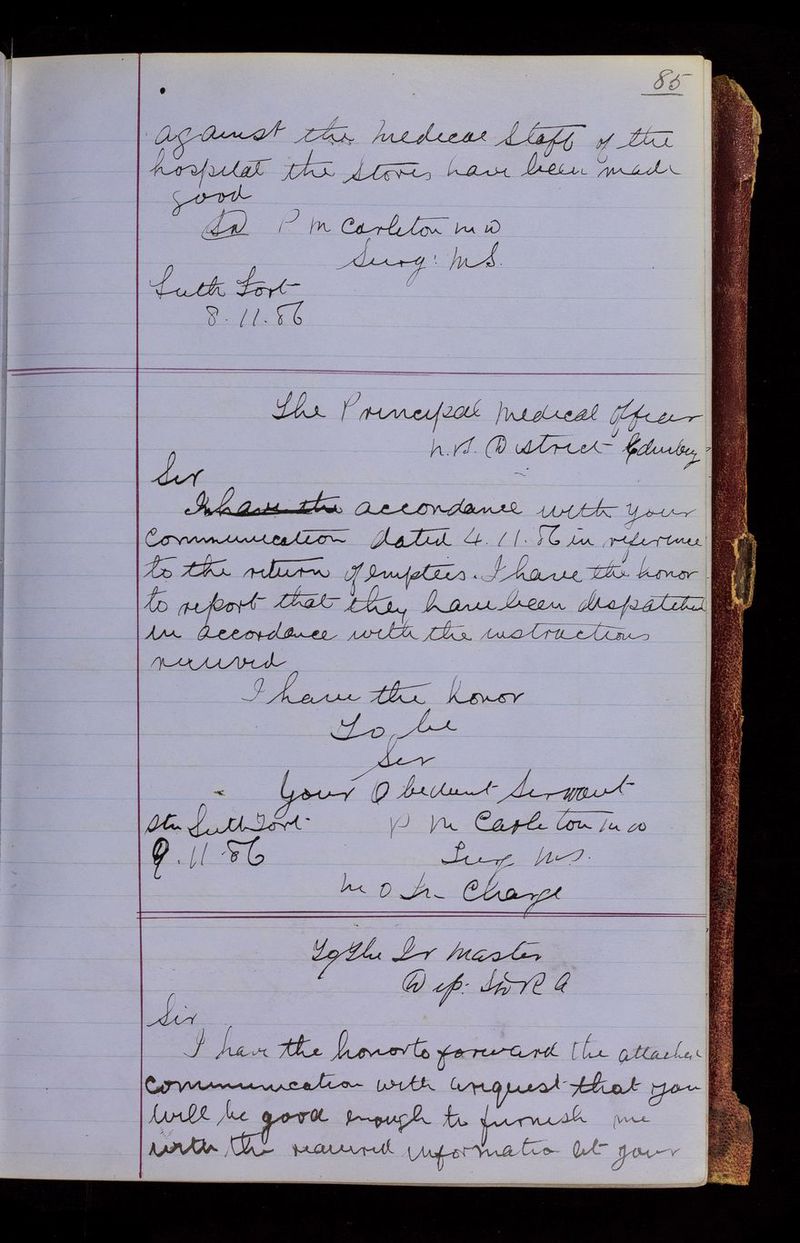 85
against the medical Staff of the
hospital the Stores have been made
good
Sd P M Carleton MD
Surg: M.S.
Leith Fort
8.11.86
The Principal medical officer
N.B. District Edinbg
Sir
In have the accordance with your
Communication dated 4.11.86 in reference
to the return of empties. I have the honor
to report that they have been dispatched
in accordance with the instructions
received
I have the honor
To be
Sir
Your Obedient Servant
Stn Leith Fort P M Carleton MD
9.11.86 Surg M.S.
M O In Charge
To The Qr Master
Dep:
Sir
I have the honor to forward the attached
Communication with a request that you
will be good enough to furnish me
with the required informatio at your